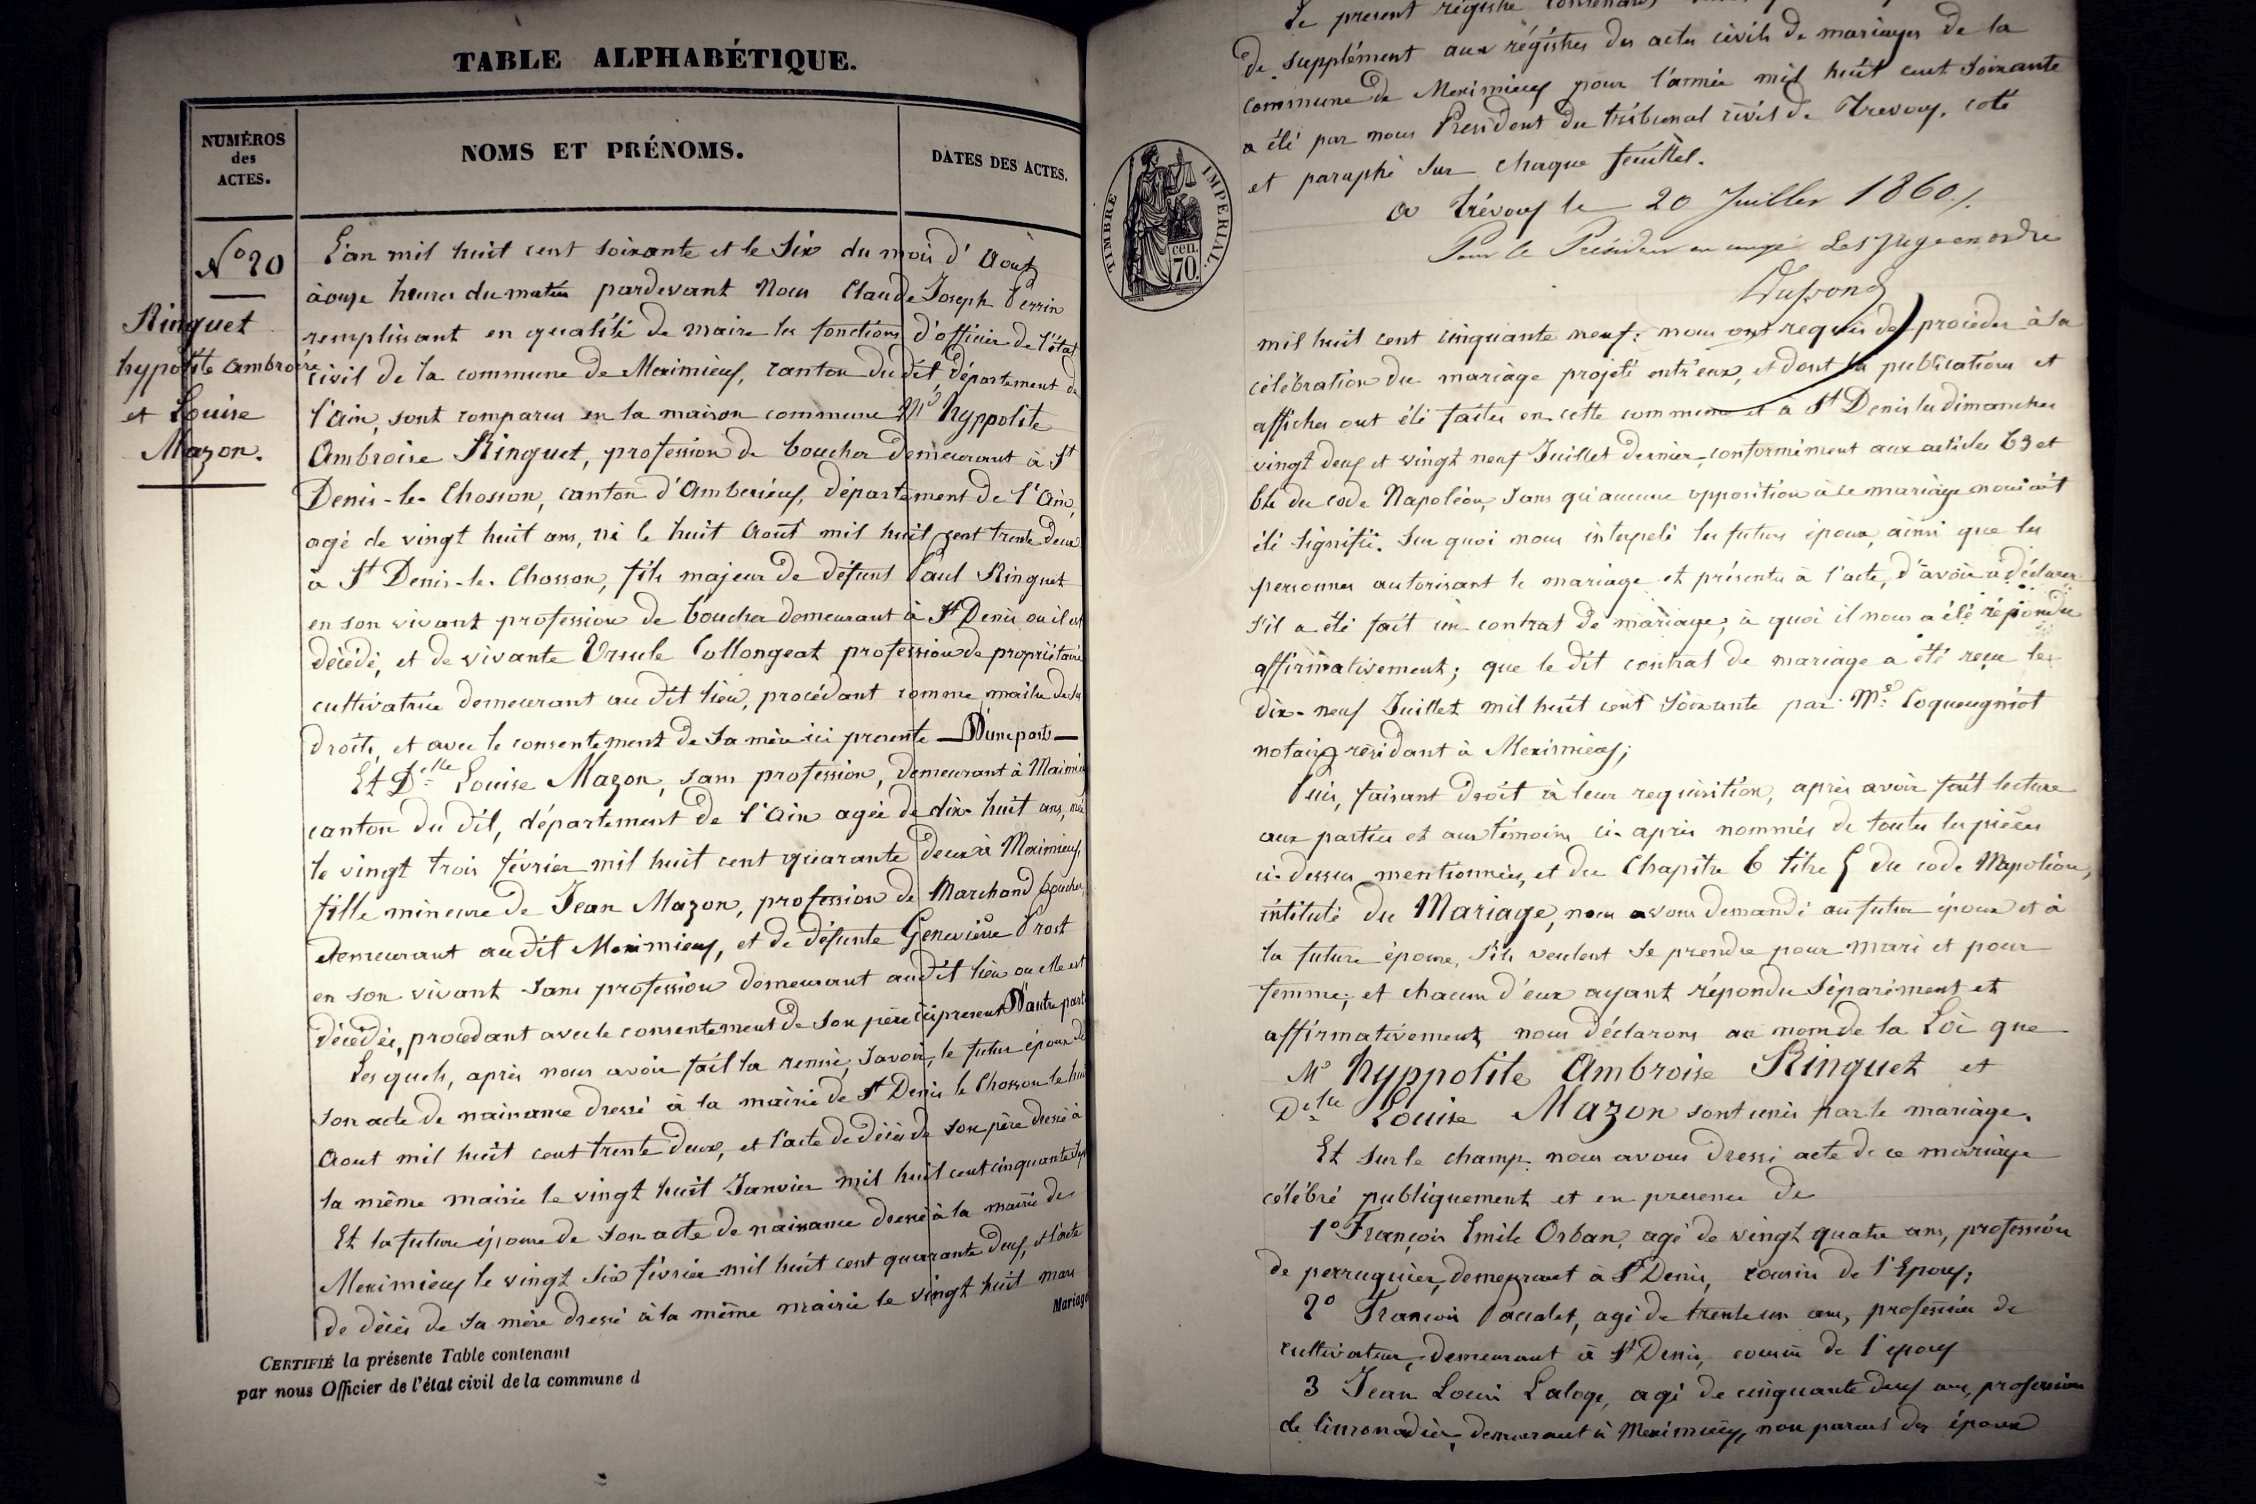 TABLE ALPHABÉTIQUE.
NUMÉROS
des
ACTES.
NOMS ET PRÉNOMS.
DATES DES ACTES.
No 20
Ringuet
hypolite ambroise
et Louise
Mazon.
L'an mil huit cent soixante et le Six du mois d'Aout
à onze heures du matin pardevant Nous Claude Joseph Perrin
remplissant en qualité de maire les fonctions d'officier de l'état
civil de la commune de Meximieux, canton du dit, département de
l'Ain, sont comparus en la maison commune Mr hyppolite
Ambroise Ringuet, profession de boucher demeurant à St
Denis-le-Chosson, canton d'Amberieux, département de l'Ain,
agé de vingt huit ans, né le huit Août mil huit cent trente deux
à St Denis-le-Chosson, fils majeur de défunt Paul Ringuet
en son vivant profession de boucher demeurant à St Denis ou il est
décédé, et de vivante Ursule Collongeat profession de propriétaire
cultivatrice demeurant au dit lieu, procédant comme maitre de ses
droits, et avec le consentement de sa mère ici presente — D'une part —
Et Delle Louise Mazon, sans profession, demeurant à Meximieux
canton du dit, département de l'Ain agée de dix-huit ans, née
le vingt trois février mil huit cent quarante deux à Meximieux,
fille mineure de Jean Mazon, profession de Marchand boucher,
demeurant au dit Meximieux, et de défunte Geneviève Prost
en son vivant sans profession demeurant au dit lieu ou elle est
décédée, procédant avec le consentement de son père ici present D'autre part
Les quels, après nous avoir fait la remise, savoir, le futur époux de
son acte de naissance dressé à la mairie de St Denis le Chosson le huit
Aout mil huit cent trente deux, et l'acte de décès de son père dressé à
la même mairie le vingt huit Janvier mil huit cent cinquante
Et la future épouse de son acte de naissance dressé à la mairie de
Meximieux le vingt six février mil huit cent quarante deux, et l'acte
de décès de sa mère dressé à la même mairie le vingt huit mars
Mariage
CERTIFIÉ la présente Table contenant
par nous Officier de l'état civil de la commune d
Le present régistre contenant
de supplément aux régistres des actes civils de mariages de la
commune de Meximieux pour l'année mil huit cent soixante
a été par nous President du tribunal civil de Trevoux, coté
et paraphé sur chaque feuillet.
a Trévoux le 20 Juillet 1860 /.
Pour le Président en congé Les Juge en ordre
TIMBRE IMPERIAL.
70 cen.
mil huit cent cinquante neuf; nous ont requis de procéder à la
célébration du mariage projeté entr'eux, et dont les publications et
affiches ont été faites en cette commune et à St Denis les dimanches
vingt deux et vingt neuf Juillet dernier, conformément aux articles 63 et
64 du code Napoléon, sans qu'aucune opposition à ce mariage nous ait
été signifié. Sur quoi nous interpelé les futurs époux, ainsi que les
personnes autorisant le mariage et présentes à l'acte, d'avoir à déclarer
s'il a été fait un contrat de mariage, à quoi il nous a été répondu
affirmativement; que le dit contrat de mariage a été reçu le
dix-neuf Juillet mil huit cent soixante par Me Coqueugniot
notaire résidant à Meximieux;
Puis, faisant droit à leur requisition, après avoir fait lecture
aux parties et aux témoins ci-après nommés de toutes les pièces
ci-dessus mentionnées, et du Chapitre 6 titre 5 du code Napoléon,
intitulé du Mariage, nous avons demandé au futur époux et à
la future épouse, s'ils veulent se prendre pour mari et pour
femme; et chacun d'eux ayant répondu séparément et
affirmativement, nous déclarons au nom de la Loi que
Mr hyppolite Ambroise Ringuet et
Delle Louise Mazon sont unis par le mariage.
Et sur le champ nous avons dressé acte de ce mariage
célébré publiquement et en presence de
1o François Emile Orban, agé de vingt quatre ans, profession
de perruquier, demeurant à St Denis, cousin de l'Epoux;
2o François Paccalet, agé de trente un ans, profession de
cultivateur, demeurant à St Denis, cousin de l'epoux
3 Jean Louis Laloge, agé de cinquante deux ans, profession
de limonadier, demeurant à Meximieux, non parent des époux